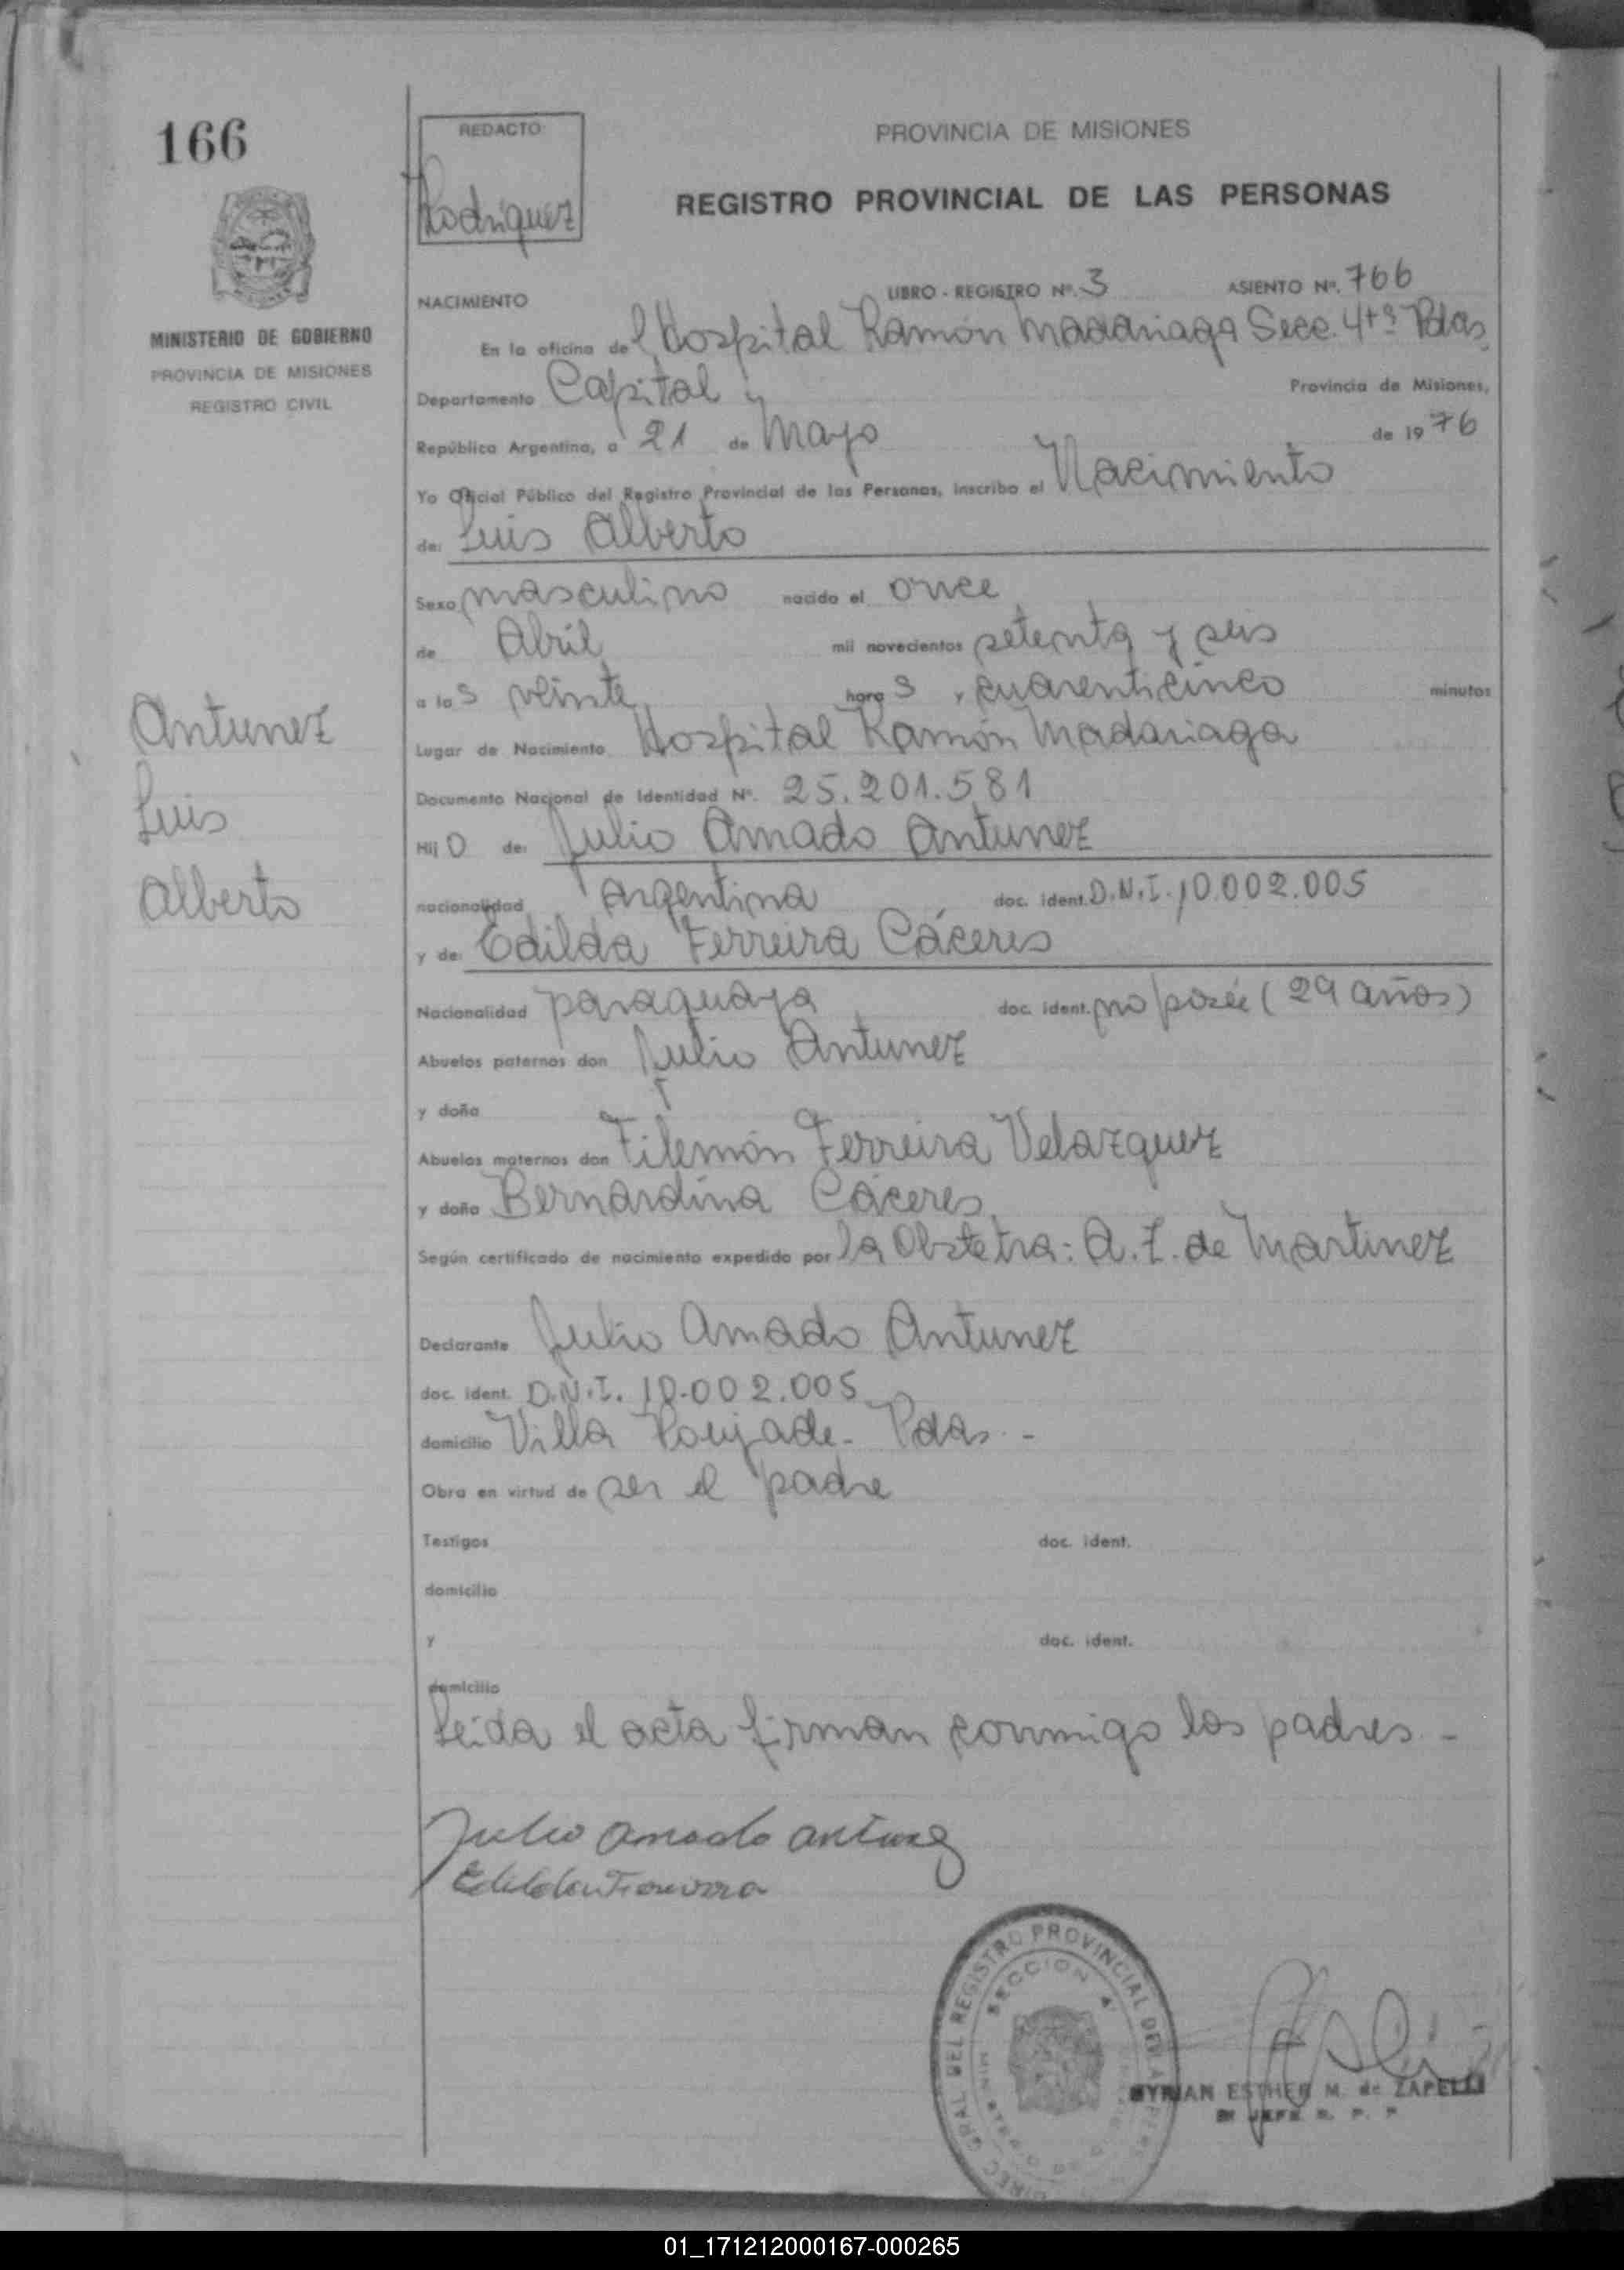 166
REDACTO:
Rodriguez
PROVINCIA DE MISIONES
REGISTRO PROVINCIAL DE LAS PERSONAS
MINISTERIO DE GOBIERNO
PROVINCIA DE MISIONES
REGISTRO CIVIL
NACIMIENTO LIBRO - REGISTRO Nº. 3 ASIENTO Nº. 766
En la oficina del Hospital Ramón Madariaga Secc. 4ta Pdas.
Departamento Capital y Provincia de Misiones,
República Argentina, a 21 de Mayo de 1976
Yo Oficial Público del Registro Provincial de las Personas, inscribo el Nacimiento
de: Luis Alberto
Sexo masculino nacido el once
de Abril mil novecientos setenta y seis
a las veinte horas y cuarenticinco minutos
Lugar de Nacimiento Hospital Ramón Madariaga
Documento Nacional de Identidad Nº. 25.201.581
Hijo de: Julio Amado Antunez
nacionalidad argentina doc. ident. D.N.I. 10.002.005
y de: Edilda Ferreira Cáceres
Nacionalidad paraguaya doc. ident. no poseé (29 años)
Abuelos paternos don Julio Antunez
y doña
Abuelos maternos don Filemón Ferreira Velazquez
y doña Bernardina Cáceres
Según certificado de nacimiento expedido por la Obstetra: A. Z. de Martinez
Declarante Julio Amado Antunez
doc. ident. D.N.I. 10.002.005
domicilio Villa Poujade - Pdas. -
Obra en virtud de ser el padre
Testigos doc. ident.
domicilio
y doc. ident.
domicilio
Leida el acta firman conmigo los padres. -
Antunez
Luis
Alberto
Julio amado antunez
Edilda Ferreira
DIREC. GRAL DEL REGISTRO PROVINCIAL DE LAS PERS
SECCION 4ª
MYRIAN ESTHER M. de ZAPELLI
JEFE R. P. P.
01_171212000167-000265